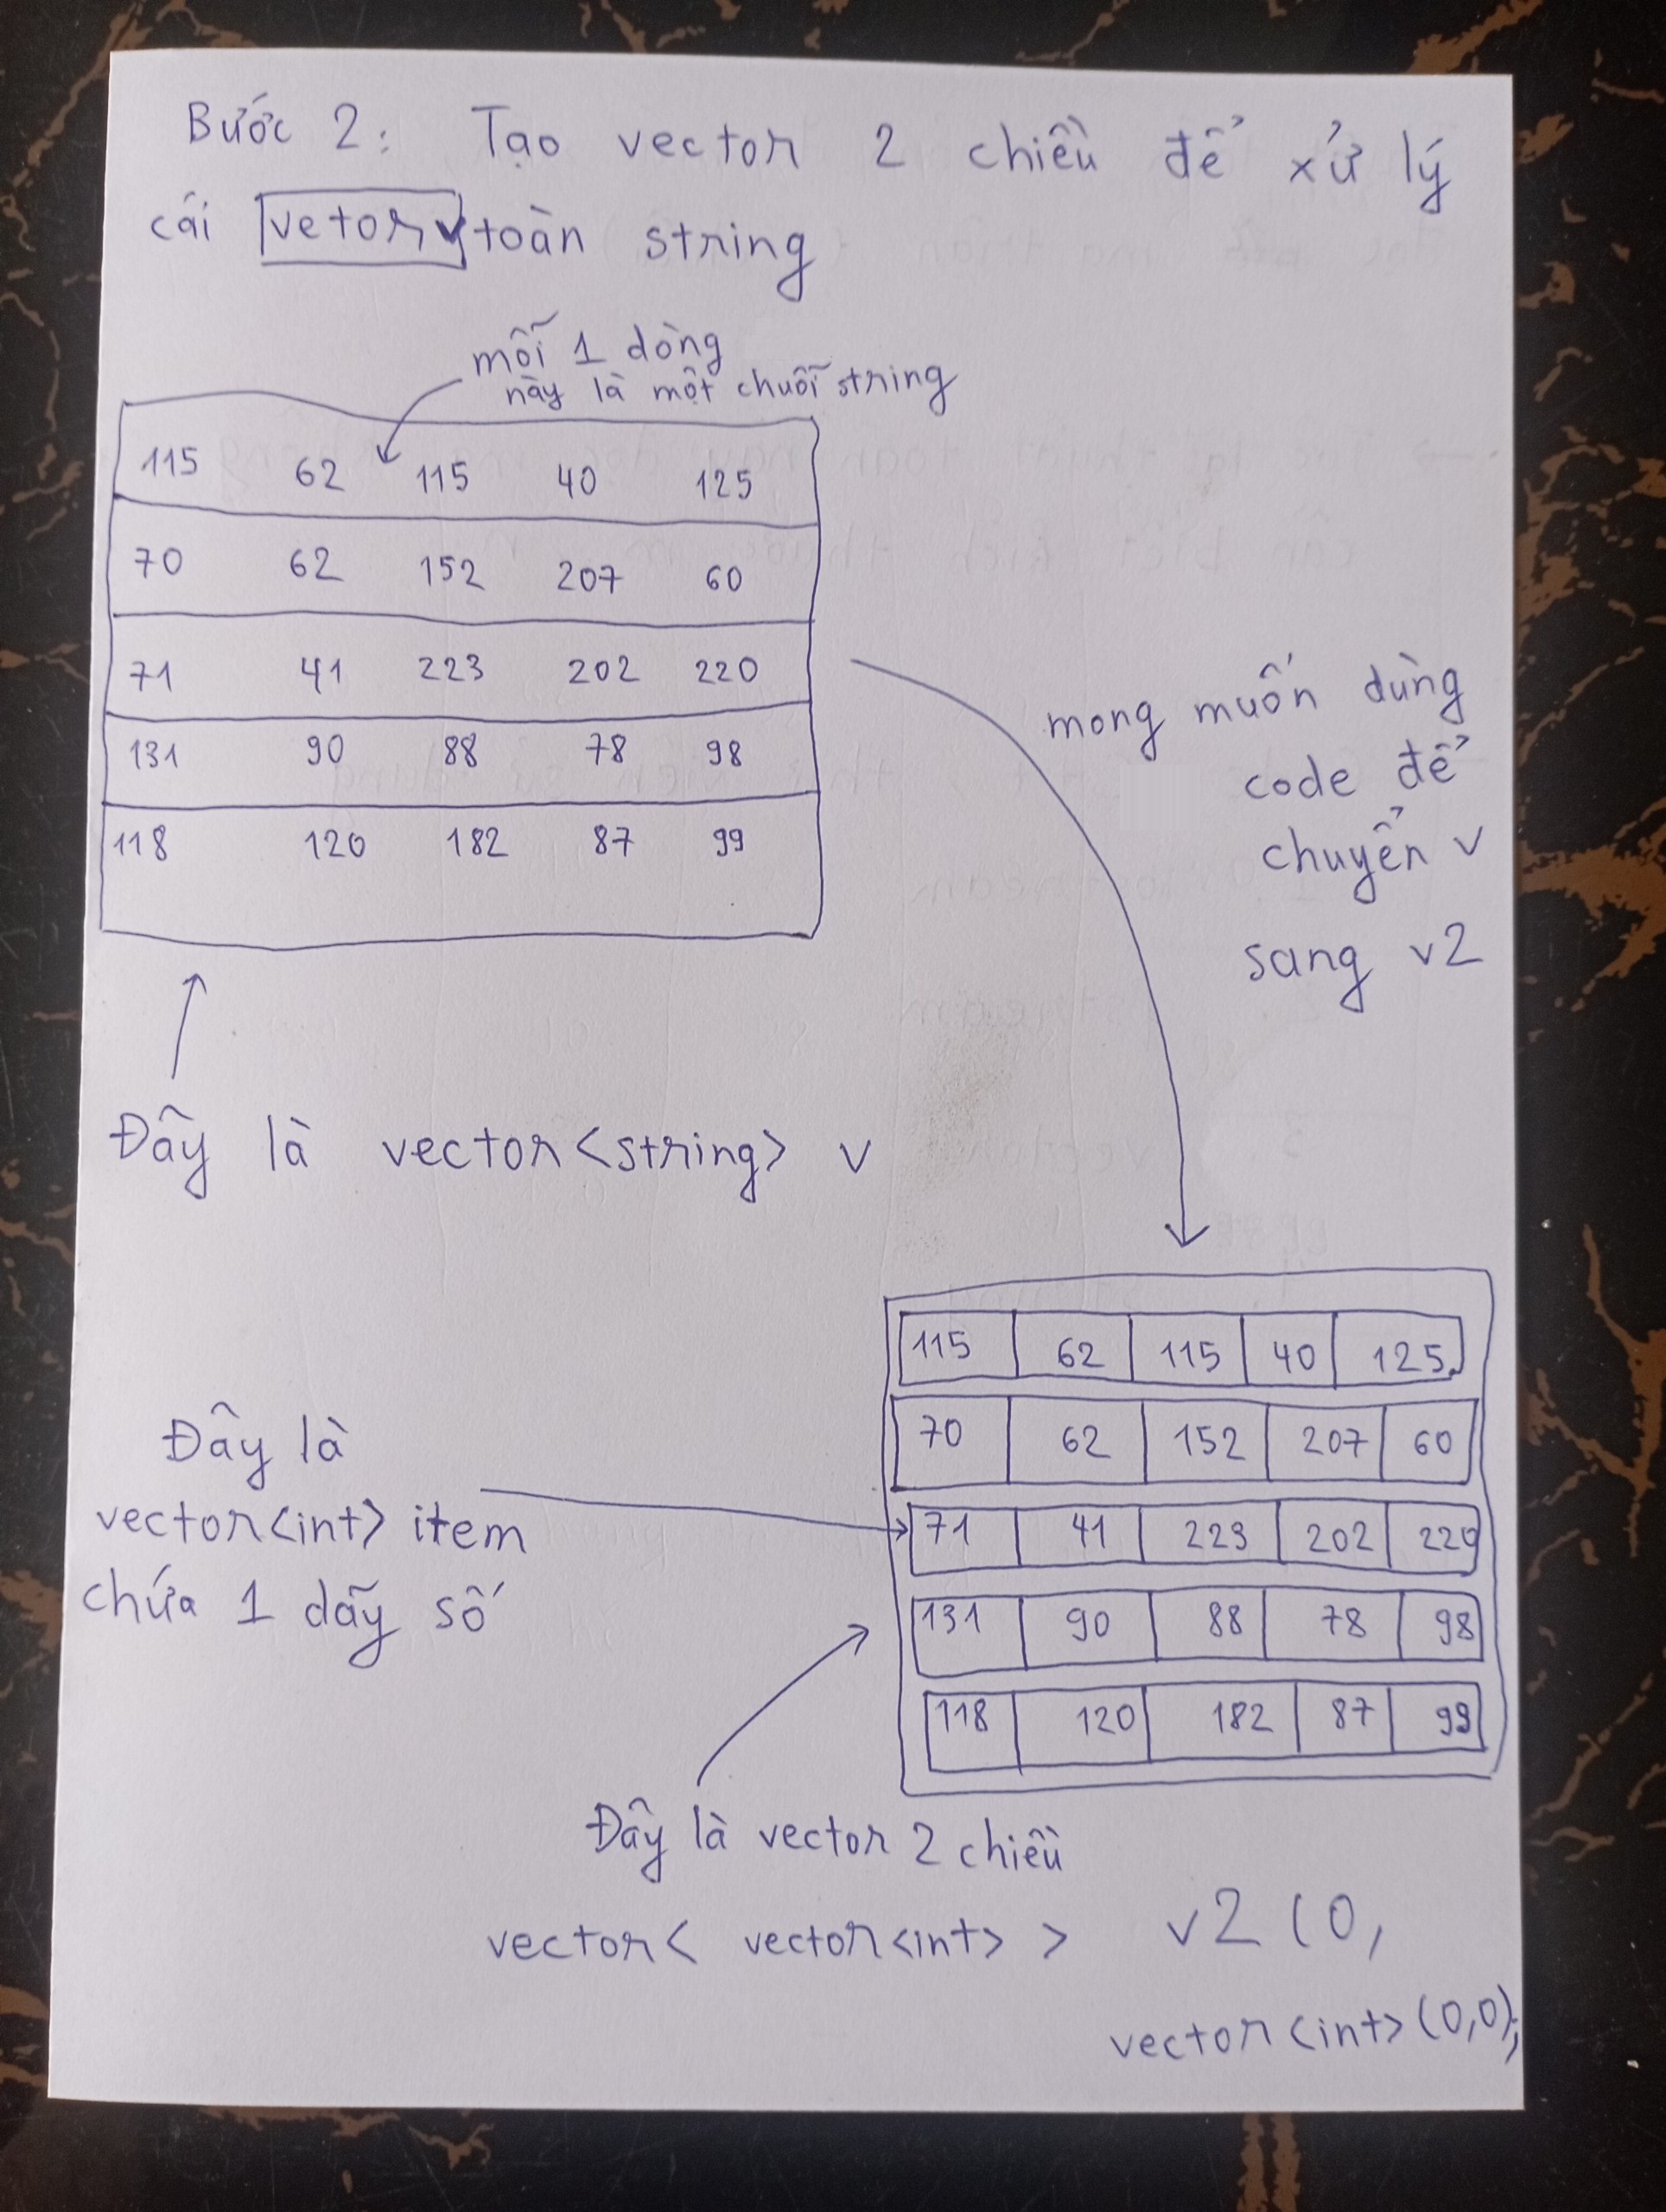 Bước 2: Tạo vector 2 chiều để xử lý
cái vetor v toàn string
mỗi 1 dòng
này là một chuỗi string
115 62 115 40 125
70 62 152 207 60
71 41 223 202 220
131 90 88 78 98
118 120 182 87 99
mong muốn dùng
code để
chuyển v
sang v2
Đây là vector<string> v
115 62 115 40 125
70 62 152 207 60
71 41 223 202 220
131 90 88 78 98
118 120 182 87 99
Đây là
vector<int> item
chứa 1 dãy số
Đây là vector 2 chiều
vector< vector<int> > v2 (0,
vector<int>(0,0);